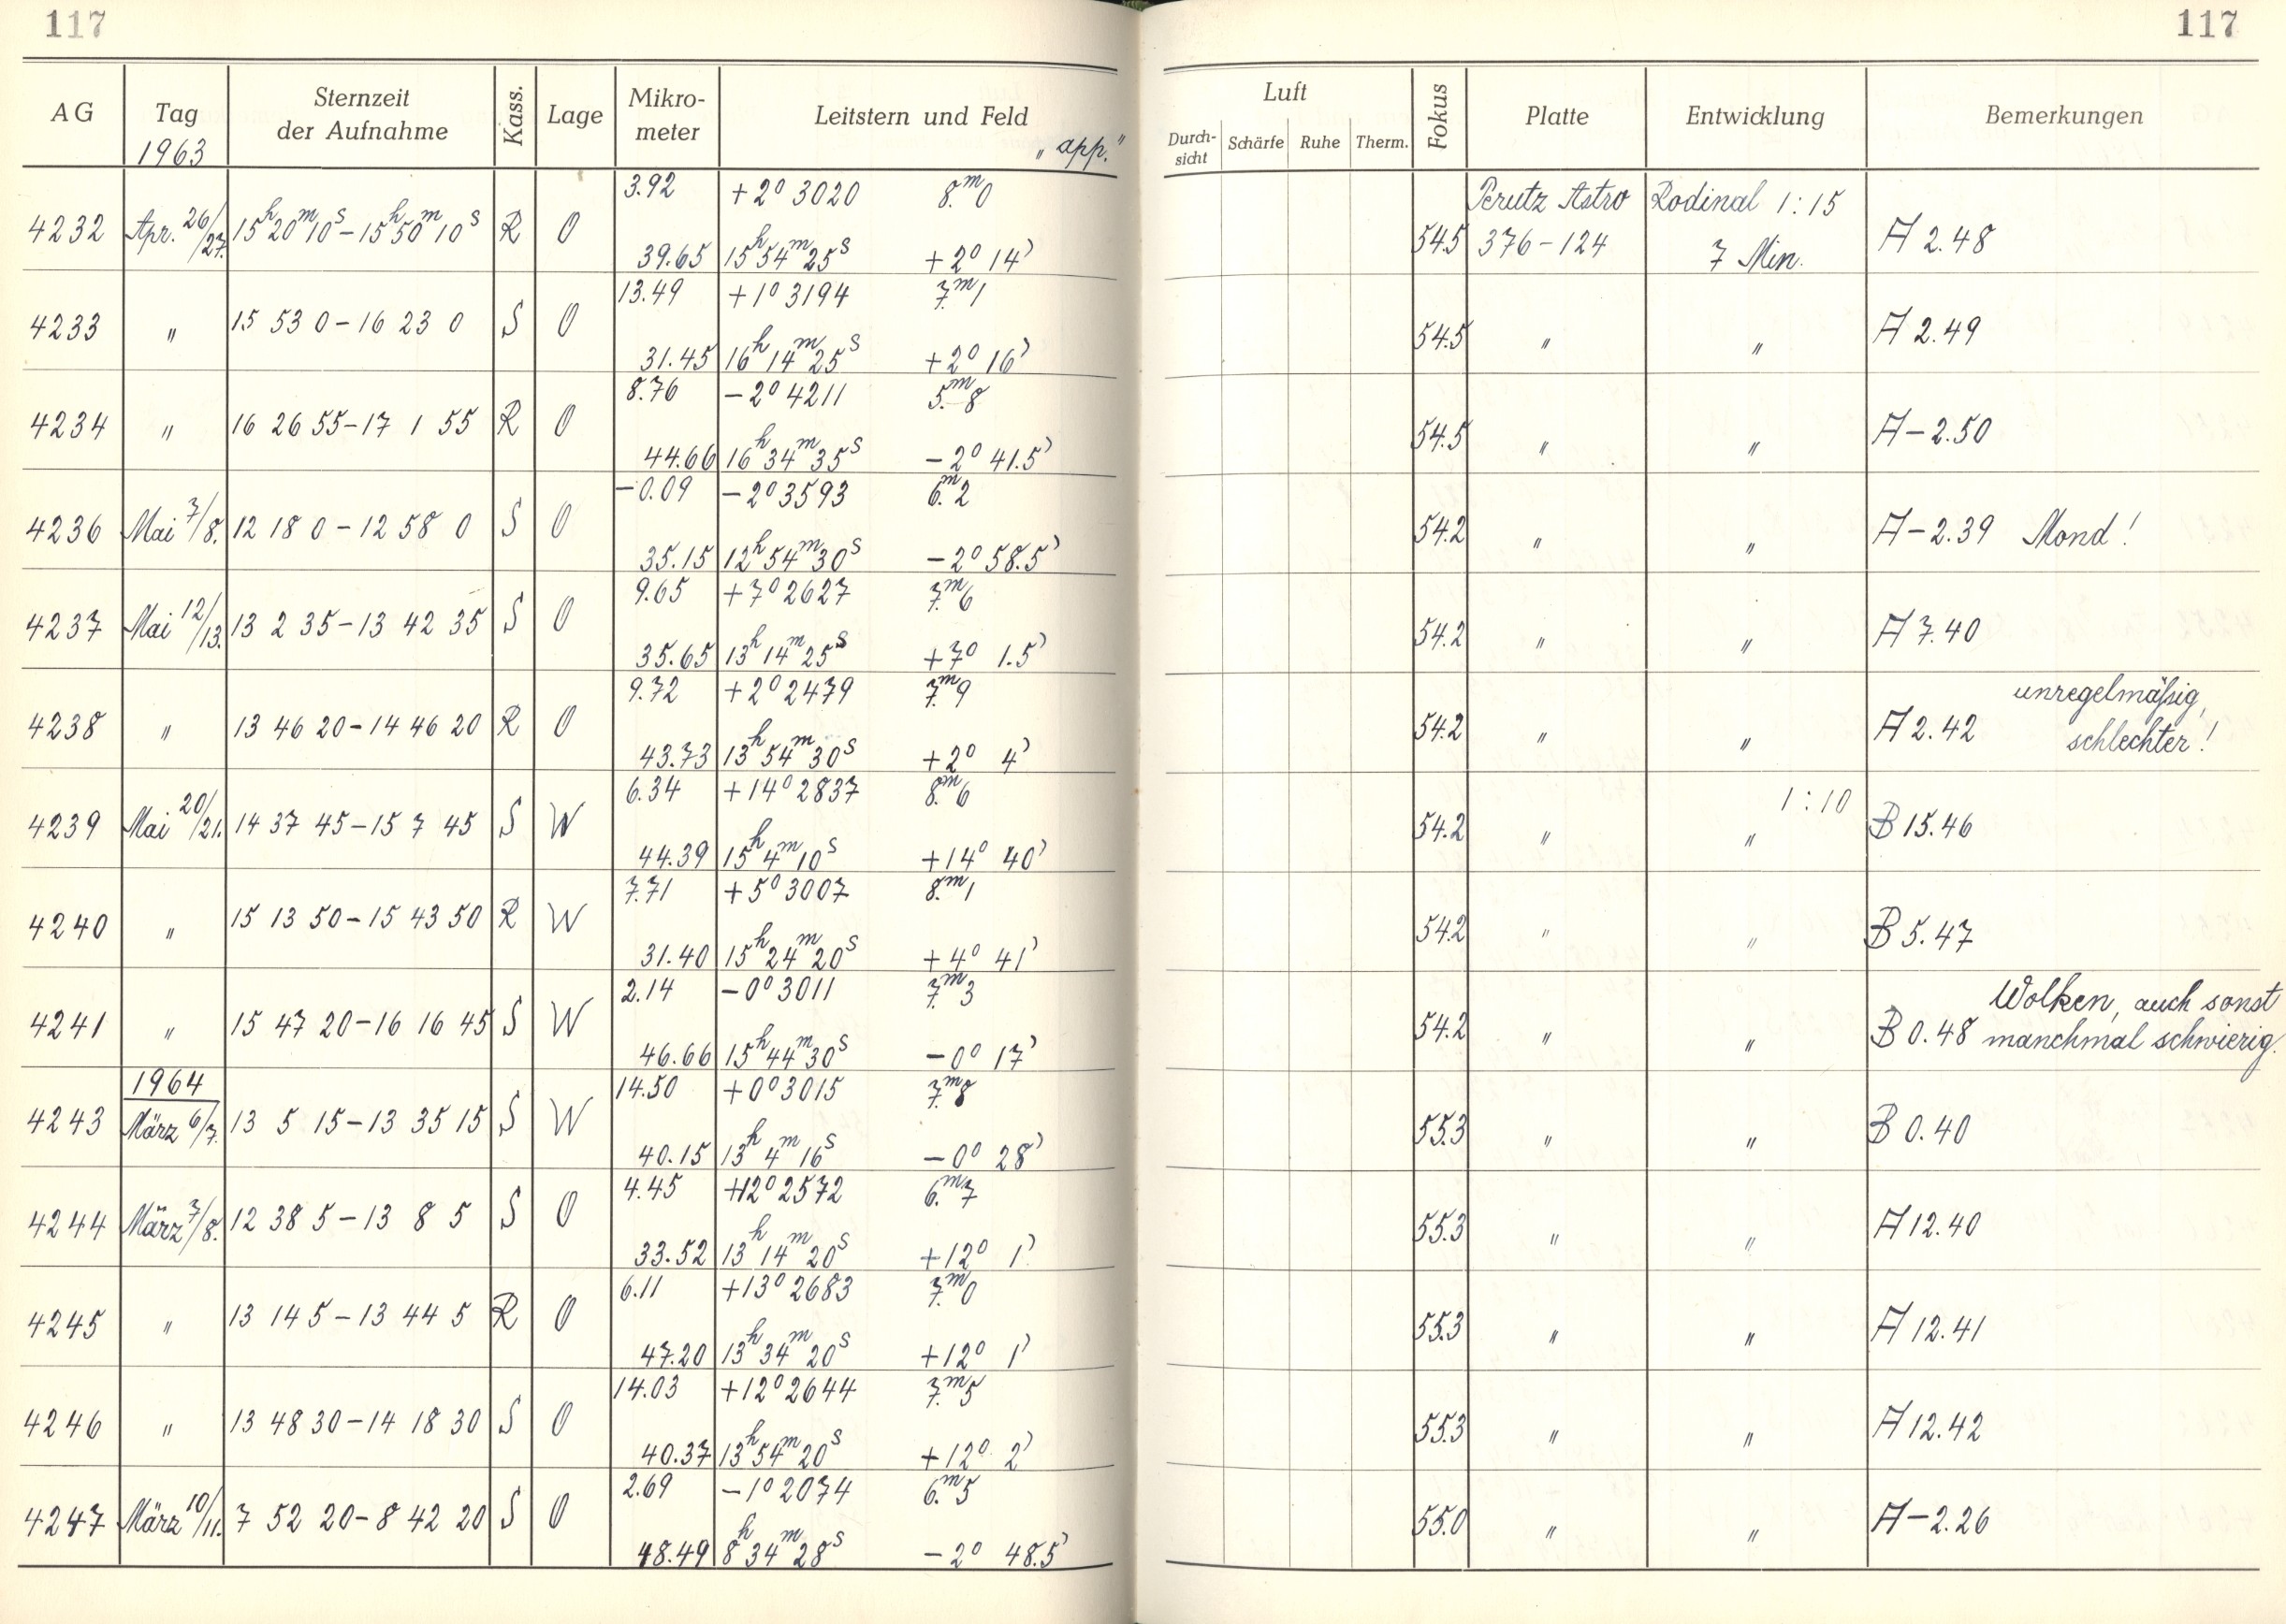 117
117
AG Tag Sternzeit der Aufnahme Kass. Lage Mikro-meter Leitstern und Feld
1963 „app."
Luft
Durch-sicht Schärfe Ruhe Therm. Fokus Platte Entwicklung Bemerkungen
3.92 +2° 3020 8.ᵐ0 Perutz Astro Rodinal 1:15
4232 Apr. 26/27. 15ʰ20ᵐ10ˢ–15ʰ50ᵐ10ˢ R O 54.5 376–124 7 Min. A 2.48
39.65 15ʰ54ᵐ25ˢ +2° 14'
13.49 +1° 3194 7.ᵐ1
4233 " 15 53 0–16 23 0 S O 54.5 " " A 2.49
31.45 16ʰ14ᵐ25ˢ +2° 16'
8.76 –2° 4211 5.ᵐ8
4234 " 16 26 55–17 1 55 R O 54.5 " " A –2.50
44.66 16ʰ34ᵐ35ˢ –2° 41.5'
–0.09 –2° 3593 6.ᵐ2
4236 Mai 7/8. 12 18 0–12 58 0 S O 54.2 " " A –2.39 Mond!
35.15 12ʰ54ᵐ30ˢ –2° 58.5'
9.65 +7° 2627 7.ᵐ6
4237 Mai 12/13. 13 2 35–13 42 35 S O 54.2 " " A 7.40
35.65 13ʰ14ᵐ25ˢ +7° 1.5'
9.72 +2° 2479 7.ᵐ9 unregelmäßig,
4238 " 13 46 20–14 46 20 R O 54.2 " " A 2.42 schlechter!
43.73 13ʰ54ᵐ30ˢ +2° 4'
6.34 +14° 2837 8.ᵐ6 1:10
4239 Mai 20/21. 14 37 45–15 7 45 S W 54.2 " " B 15.46
44.39 15ʰ4ᵐ10ˢ +14° 40'
7.71 +5° 3007 8.ᵐ1
4240 " 15 13 50–15 43 50 R W 54.2 " " B 5.47
31.40 15ʰ24ᵐ20ˢ +4° 41'
2.14 –0° 3011 7.ᵐ3 Wolken, auch sonst
4241 " 15 47 20–16 16 45 S W 54.2 " " B 0.48 manchmal schwierig.
46.66 15ʰ44ᵐ30ˢ –0° 17'
1964 14.50 +0° 3015 7.ᵐ8
4243 März 6/7. 13 5 15–13 35 15 S W 55.3 " " B 0.40
40.15 13ʰ4ᵐ16ˢ –0° 28'
4.45 +12° 2572 6.ᵐ7
4244 März 7/8. 12 38 5–13 8 5 S O 55.3 " " A 12.40
33.52 13ʰ14ᵐ20ˢ +12° 1'
6.11 +13° 2683 7.ᵐ0
4245 " 13 14 5–13 44 5 R O 55.3 " " A 12.41
47.20 13ʰ34ᵐ20ˢ +12° 1'
14.03 +12° 2644 7.ᵐ5
4246 " 13 48 30–14 18 30 S O 55.3 " " A 12.42
40.37 13ʰ54ᵐ20ˢ +12° 2'
2.69 –1° 2074 6.ᵐ5
4247 März 10/11. 7 52 20–8 42 20 S O 55.0 " " A –2.26
48.49 8ʰ34ᵐ28ˢ –2° 48.5'